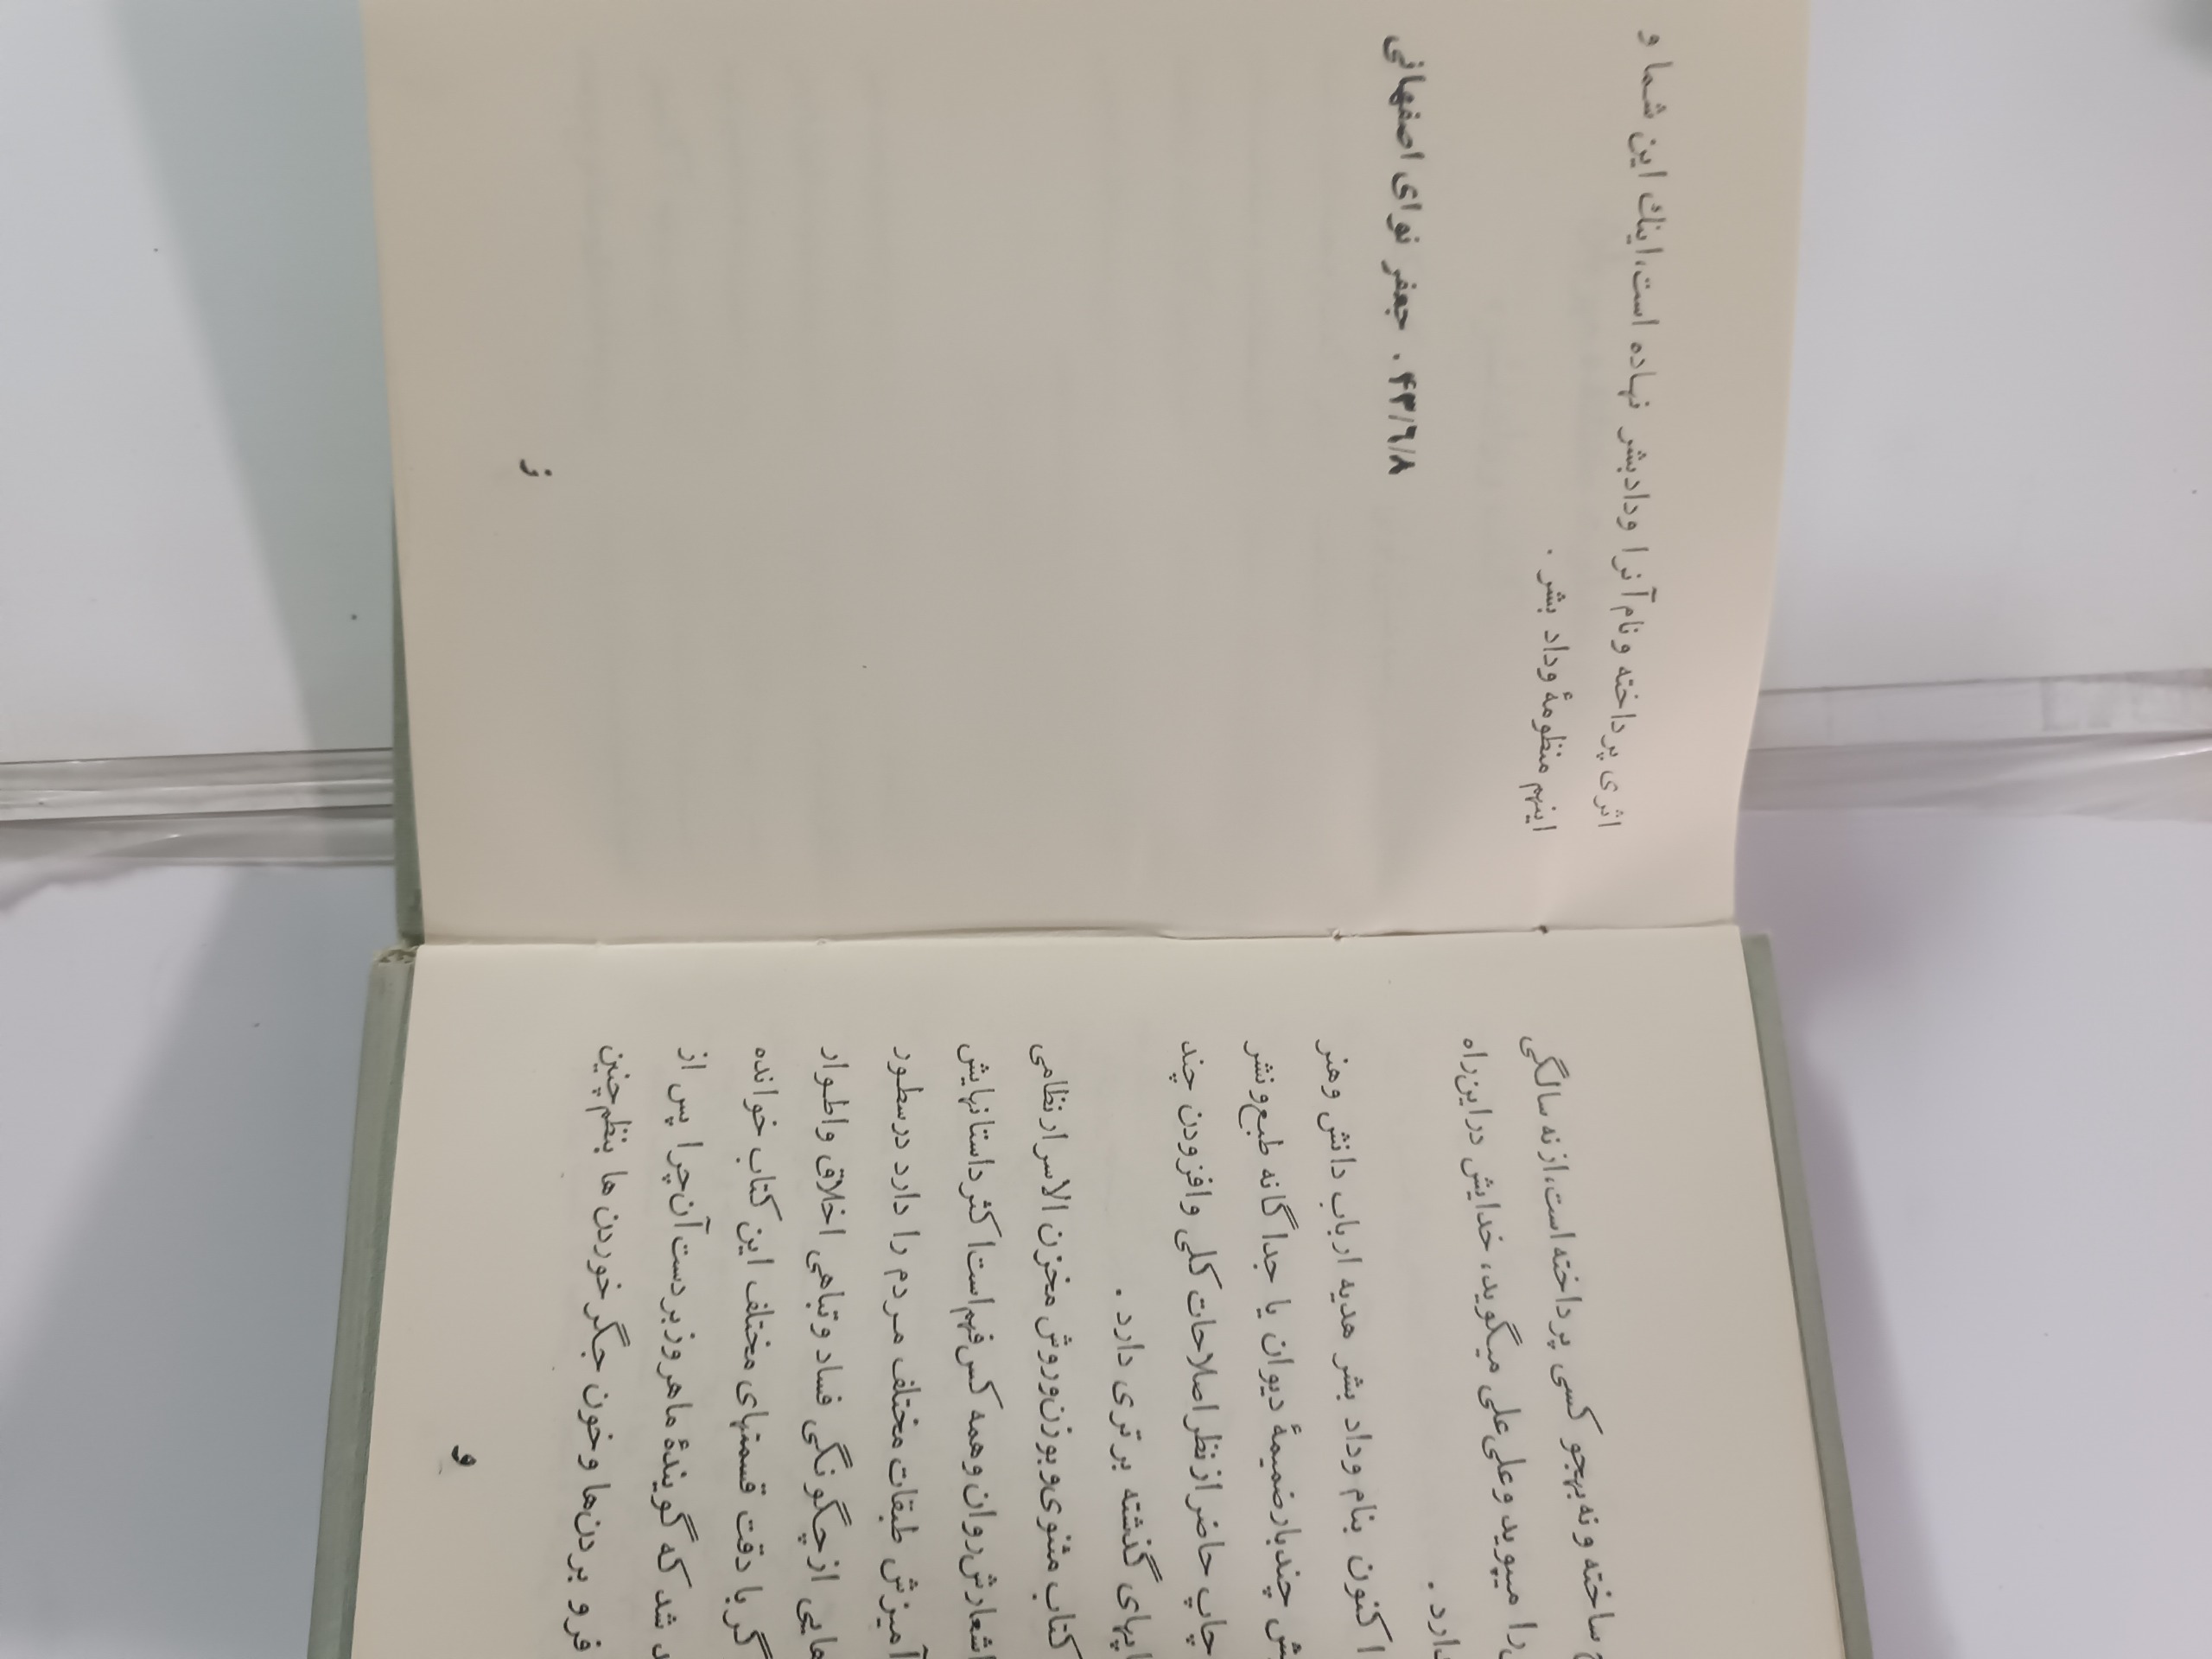 ساخته و نه بهجو کسی پرداخته است،از نه سالگی
را میپوید وعلی علی میگوید، خدایش دراین راه
دارد .
اکنون بنام وداد بشر هدیه ارباب دانش وهنر
چندبار ضمیمۀ دیوان یا جداگانه طبع ونشر
چاپ حاضر از نظر اصلاحات کلی وافزودن چند
گذشته برتری دارد .
کتاب مثنوی وبوزن وروش مخزن الاسرار نظامی
اشعارش روان وهمه کس فهم است اکثر داستانهایش
آمیزش طبقات مختلف مردم را دارد درسطور
هایی ازچگونگی فساد وتباهی اخلاق واطوار
گر با دقت قسمتهای مختلف این کتاب خوانده
شد که گویندۀ ماهر وزبردست آن چرا پس از
فرو بردن‌ها وخون جگر خوردن ها بنظم چنین
و
اثری پرداخته و نام آنرا ودادبشر نهاده است،اینك این شما و
اینهم منظومۀ وداد بشر .
۴۳/۶/۸ . جعفر نوای اصفهانی
ز